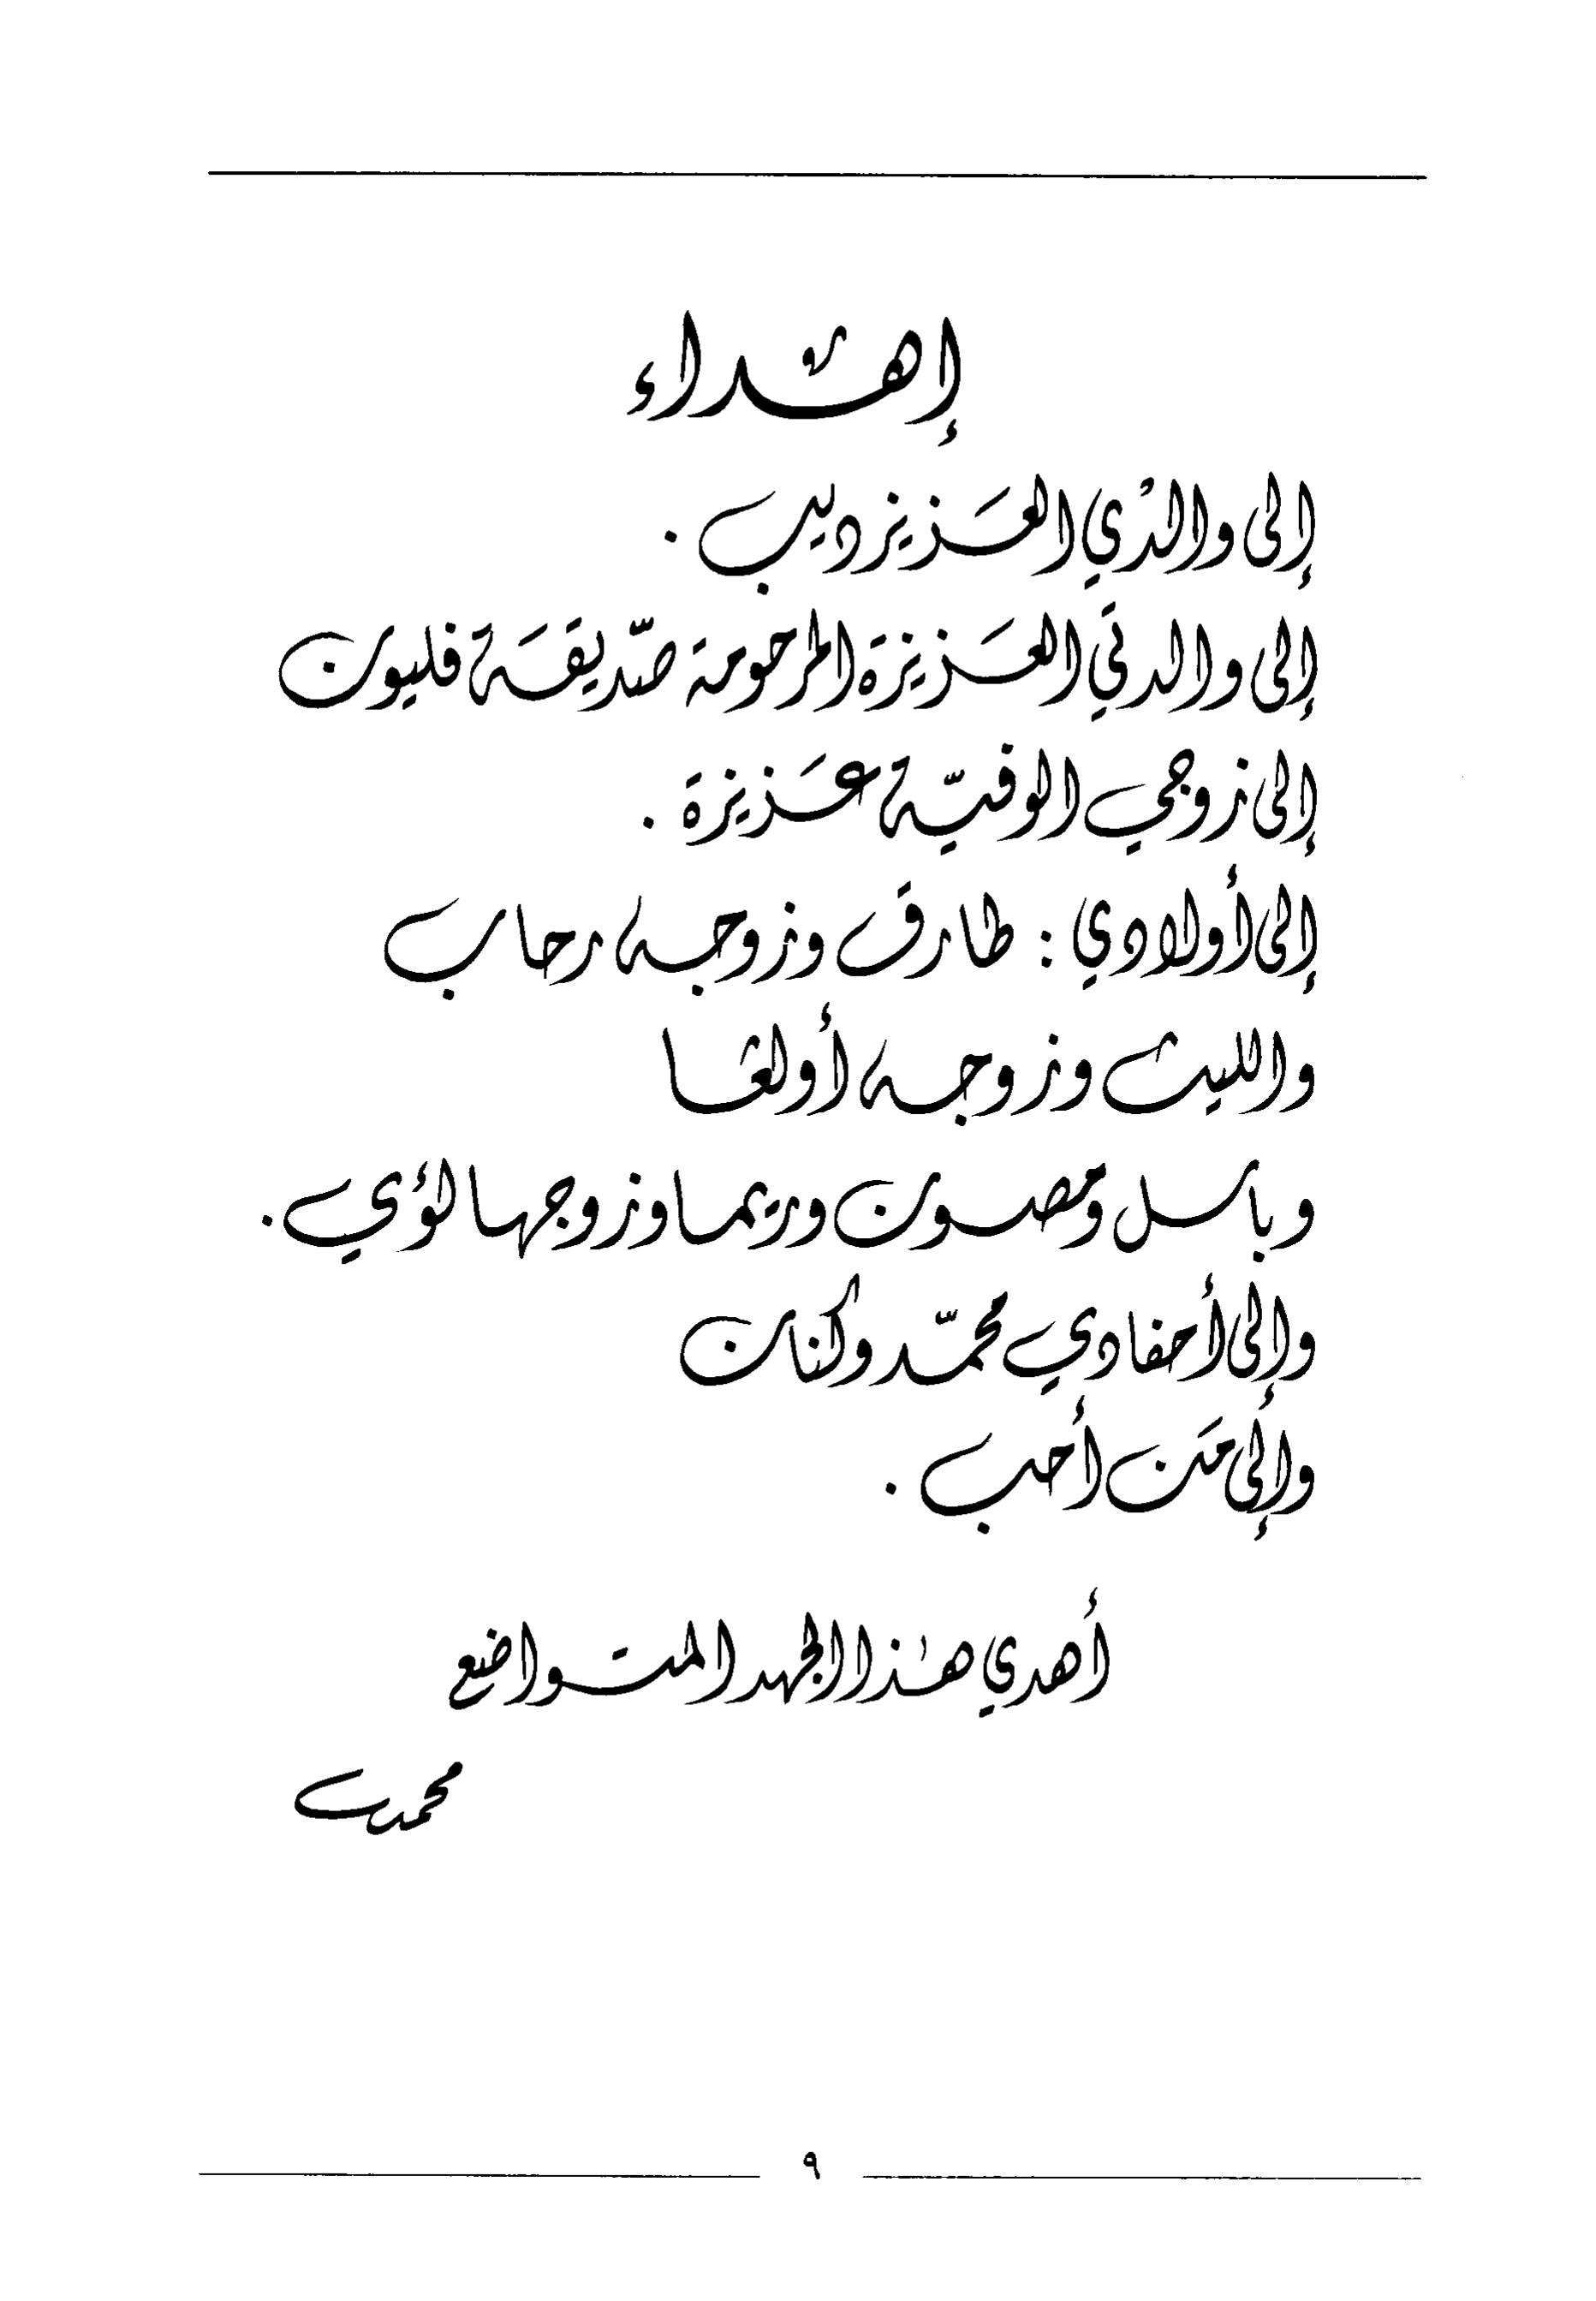 إهداء
إلى والدي العَزيز ديب .
إلى والدتي العَزيزة المرحومة صدّيقَة فليون
إلى زوجي الوفيّة عَزيزة .
إلى أولادي : طارق وزوجه رحاب
والليث وزوجه أولغا
وباسل وغصون وريما وزوجها لؤي .
وإلى أحفادي محمّد وكنان
وإلى مَن أحب .
أهدي هذا الجهد المتواضع
محمد
٩